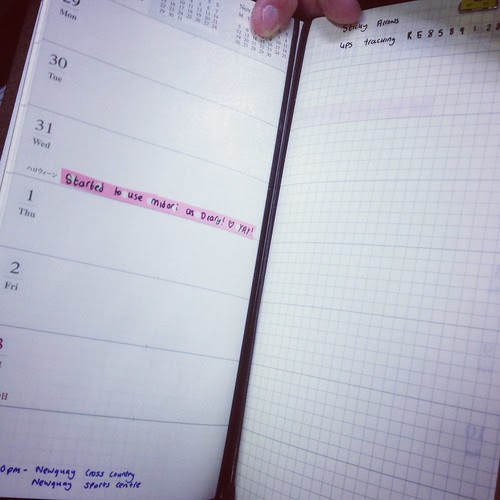 29
Mon
30
Tue
31
Wed
ハロウィーン
Started to use midori as Diary! ♡ YAY!
1
Thu
2
Fri
pm - Newquay Cross Country
Newquay sports centre
Sticky Arrows
ups tracking RE8589